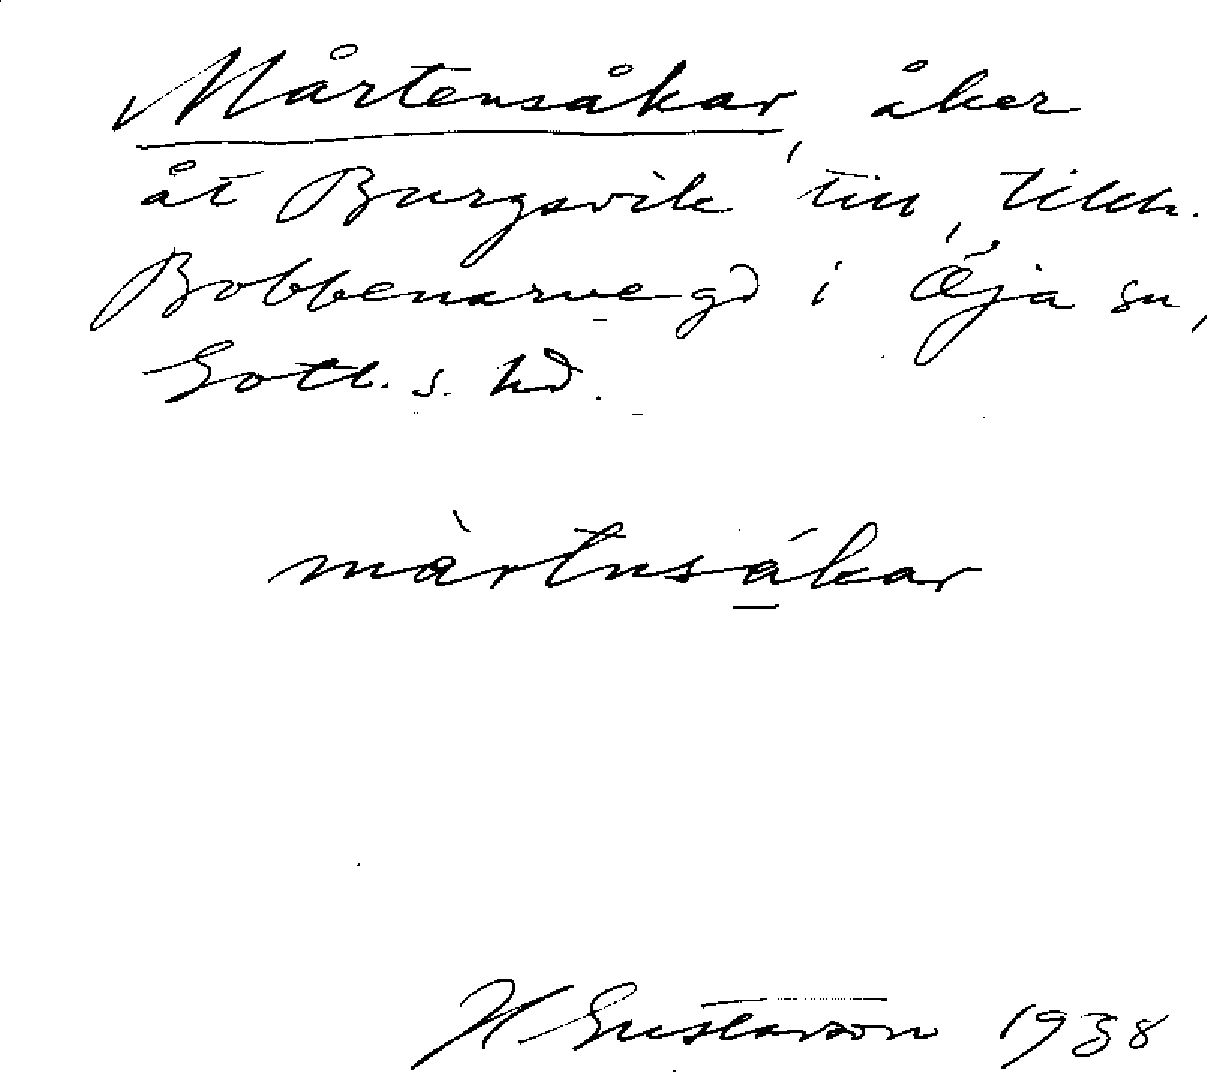 Mårtensåkar, åker
åt Burgsvik till, tillh.
Bobbenarve gd i Öja sn,
Gotl. s. hd.
màrtnsákar
H Gustavson 1938